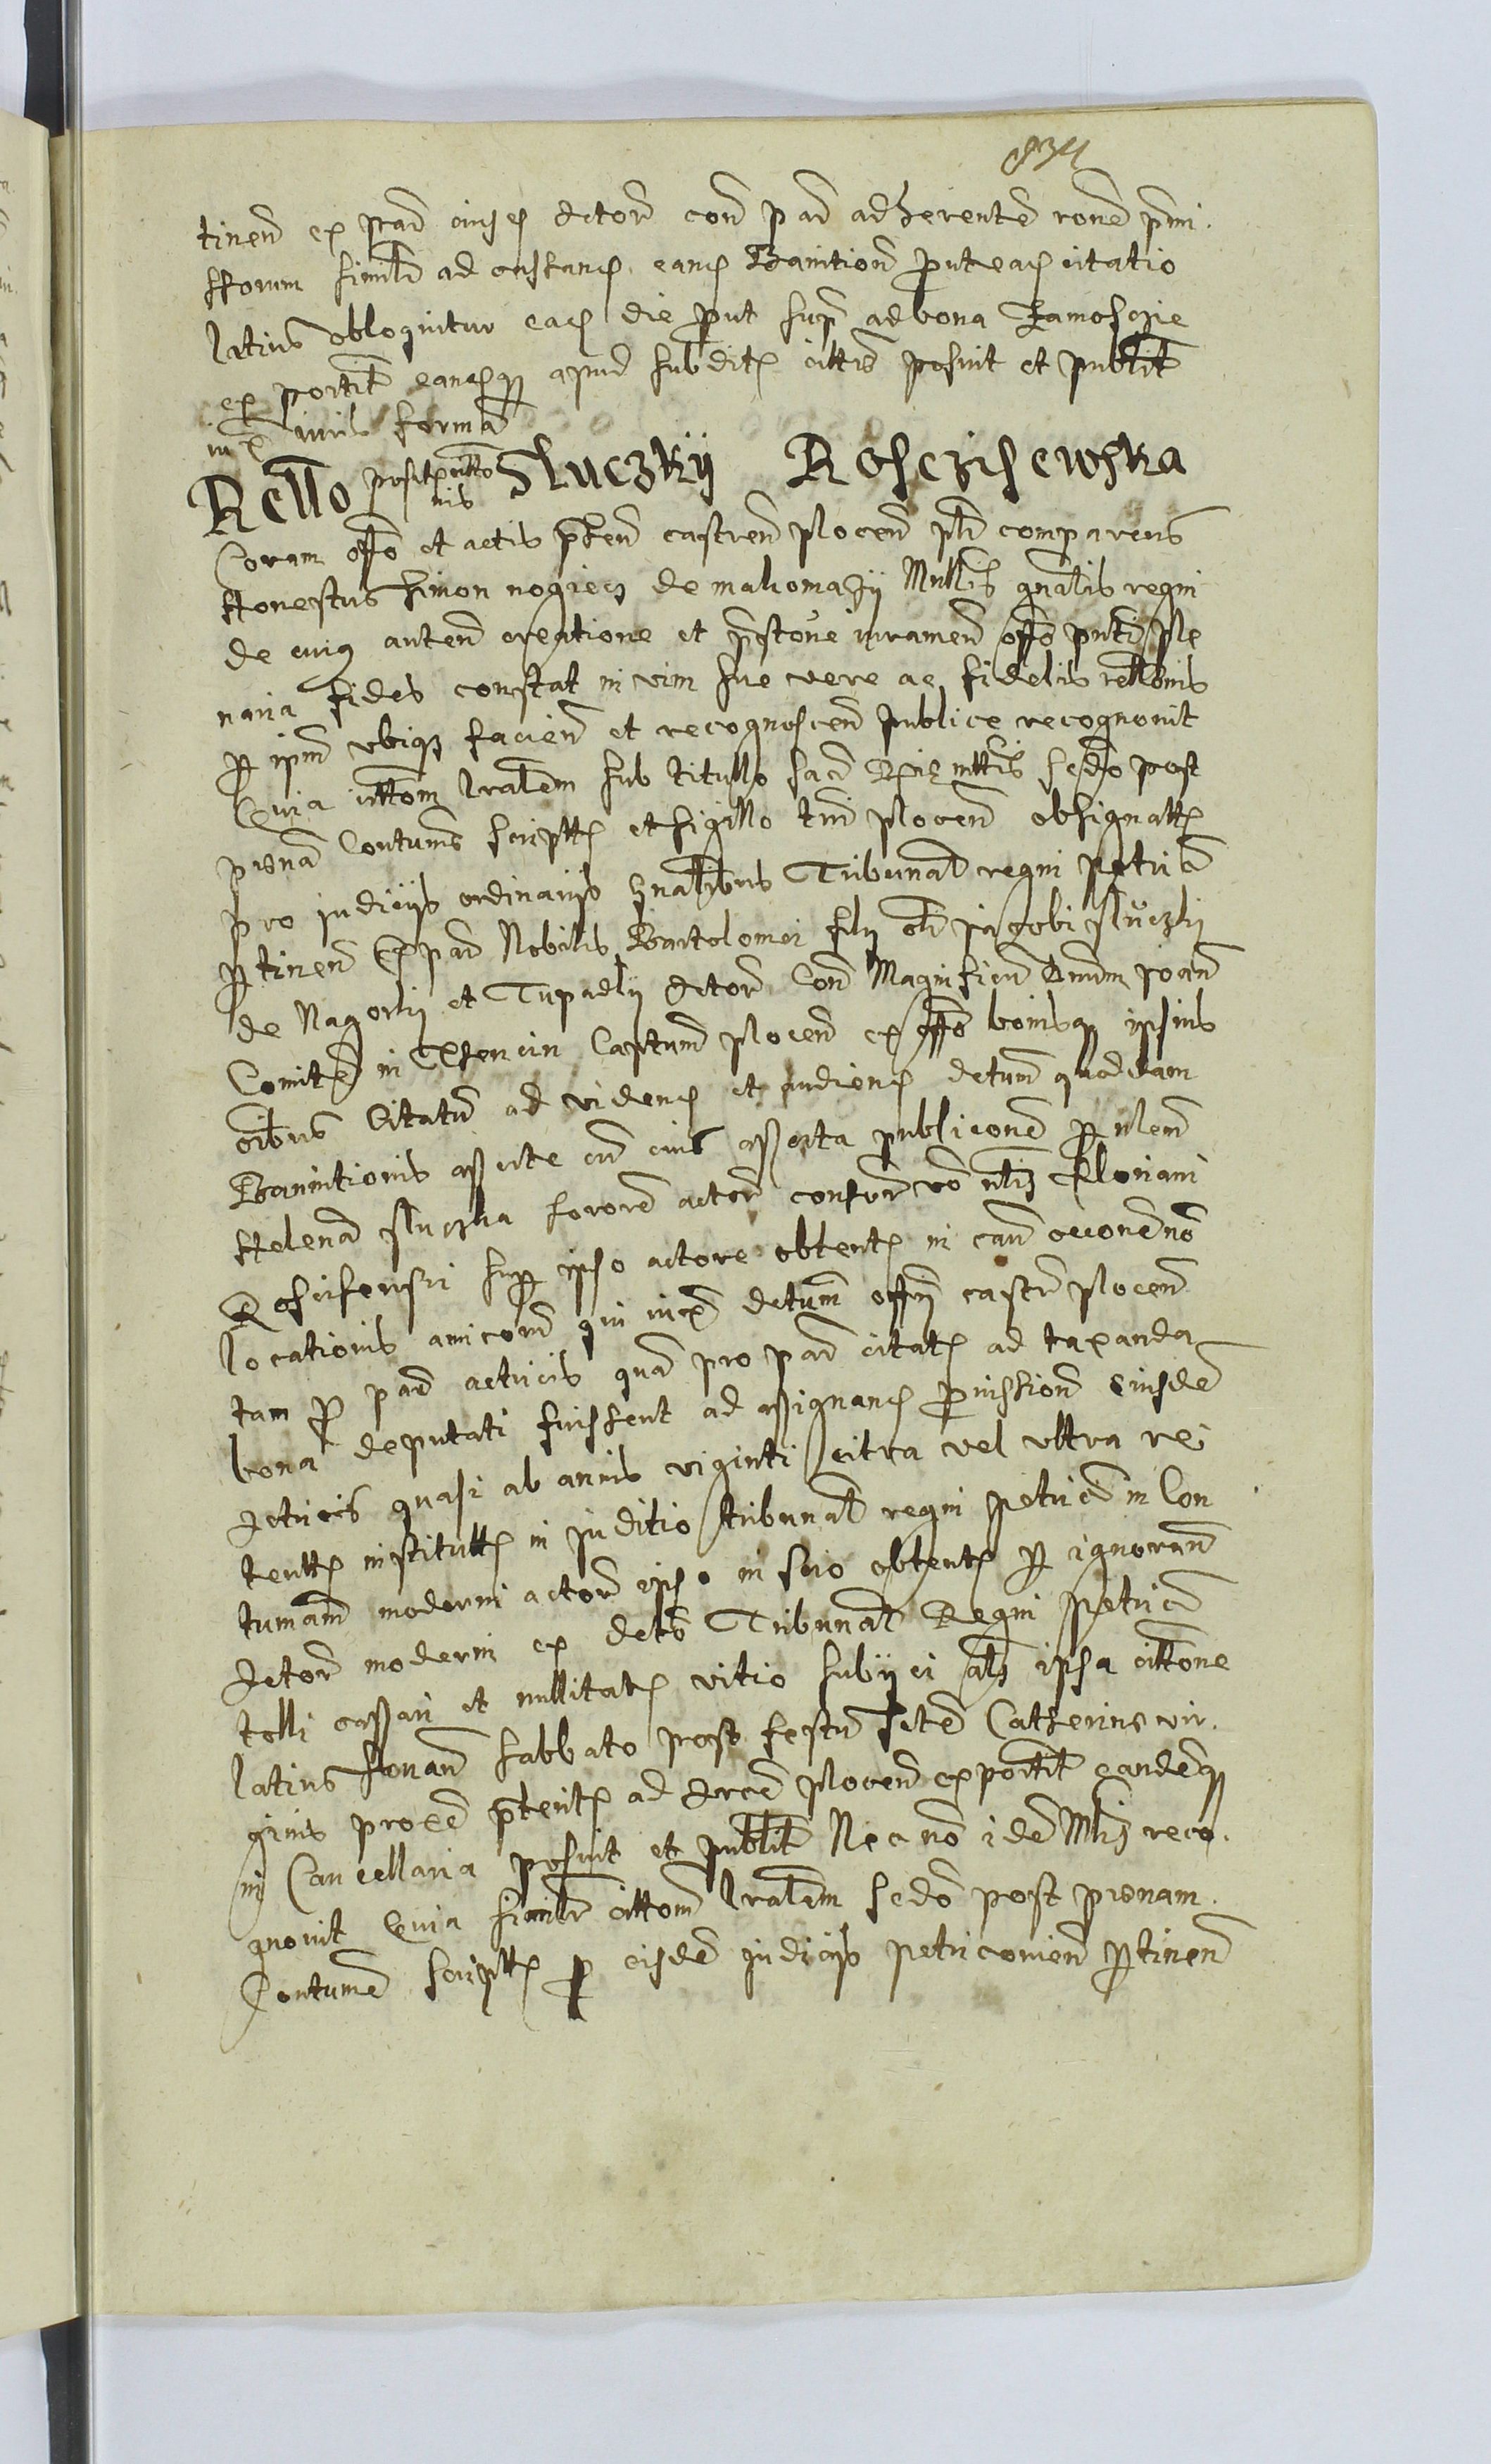 834
tinen ex par eiusd Actor con par adherente rone prmi
ssorum similr ad instand eand Banition prout ead citatio
latius obloquitur ead die put supr ad bona Zamoscie
ex portit eandqz apud subdit cittis posuit et publit
iux iuris forma
Rello posit citto nis Sluczkÿ Roscziszewska
Coram offo et actis pnten castren plocen plr comparens
Honestus Simon nogiecz de malomazÿ Mnllis gnalis regni
de cuiq auten creatione et prstone iuramen offo pnti ple
naria fides constat in vim sue vere ac fidelis rellonis
p ipm vbiqz facien et recognoscen publice recognovit
Quia cittom lralem sub titullo sacr Regie mttis scdo post
piona Contums scriptt et sigillo trri plocen obsignatt
pro judicÿs ordinarÿs gnalibus Tribunal regni petric
ptinen Ex par Nobilis Bartolomei filÿ oli jacobi sluczkÿ
de Nagorkÿ et Tupadlÿ Actor Con Magnificu Dnum joan
Comite in Tenczin Captum plocen ex offo bonisqz ipsius
oibus Citatu ad vidend et audiend detum quoddam
Bannitionis asserte cu eius asserta publicone p nlem
Helena sluczka sorore actor consor vo nlis Floriani
Roscisewski sup ipso actore obtent in cau occone no
locationis amicoru qui iuxt detum offÿ castr plocen
tam p par actricis qua pro par citat ad taxanda
bona deputati fuissent ad assignand prvission eiusde
Actricis quasi ab annis viginti citra vel vltra re
tentt institutt in juditio tribunal regni petric in Con
tumam moderni actor ipso in scio obtent p ignoran
Actor moderni ex detis Tribunal Regni petric
tolli cassari et nullitat vitio subÿci alr ipsa cittone
latius sonan sabbato post festu scte Catherine vir
ginis proxe pterit ad Arce plocen exportit eandeqz
in Cancellaria posuit et publit Nec no ide Mlrz reco
gnovit Quia similr cittom lralem scdo post pionam
Contume scriptt p eisde judicÿs petriconien ptinen